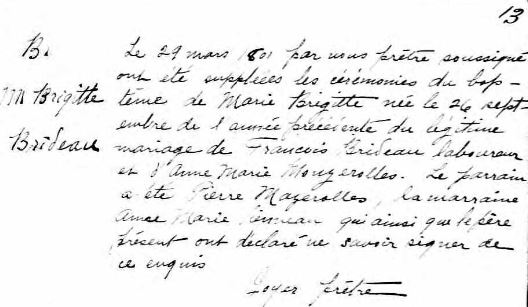 13
B.
M Brigitte
Brideau
Le 29 mars 1801 par nous prêtre soussigné
ont été suppléées les cérémonies du bap-
tême de Marie Brigitte née le 26 sept-
embre de l'année précédente du légitime
mariage de François Brideau laboureur
et d'Anne Marie Mouzerolles. Le parrain
a été Pierre Mazerolles, la marraine
Anne Marie qui ainsi que le père
présent ont déclaré ne savoir signer de
ce enquis
prêtre